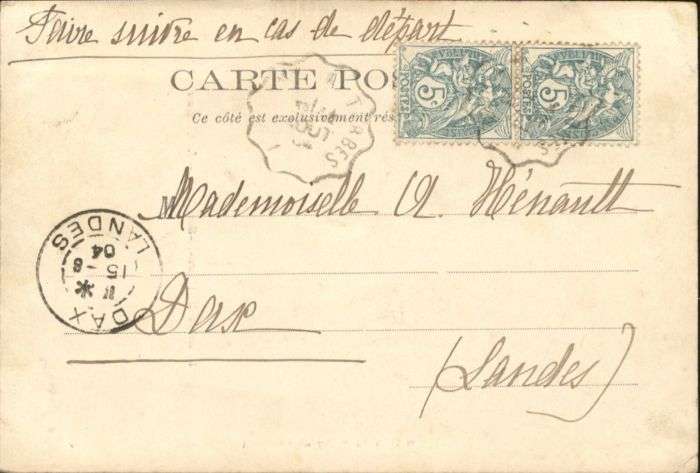 Faire suivre en cas de départ
CARTE POS
Ce côté est exclusivement rés
5c
5c
TARBES
Mademoiselle A. Hénault
DAX
LANDES
15 - 8
04
Dax
(Landes)